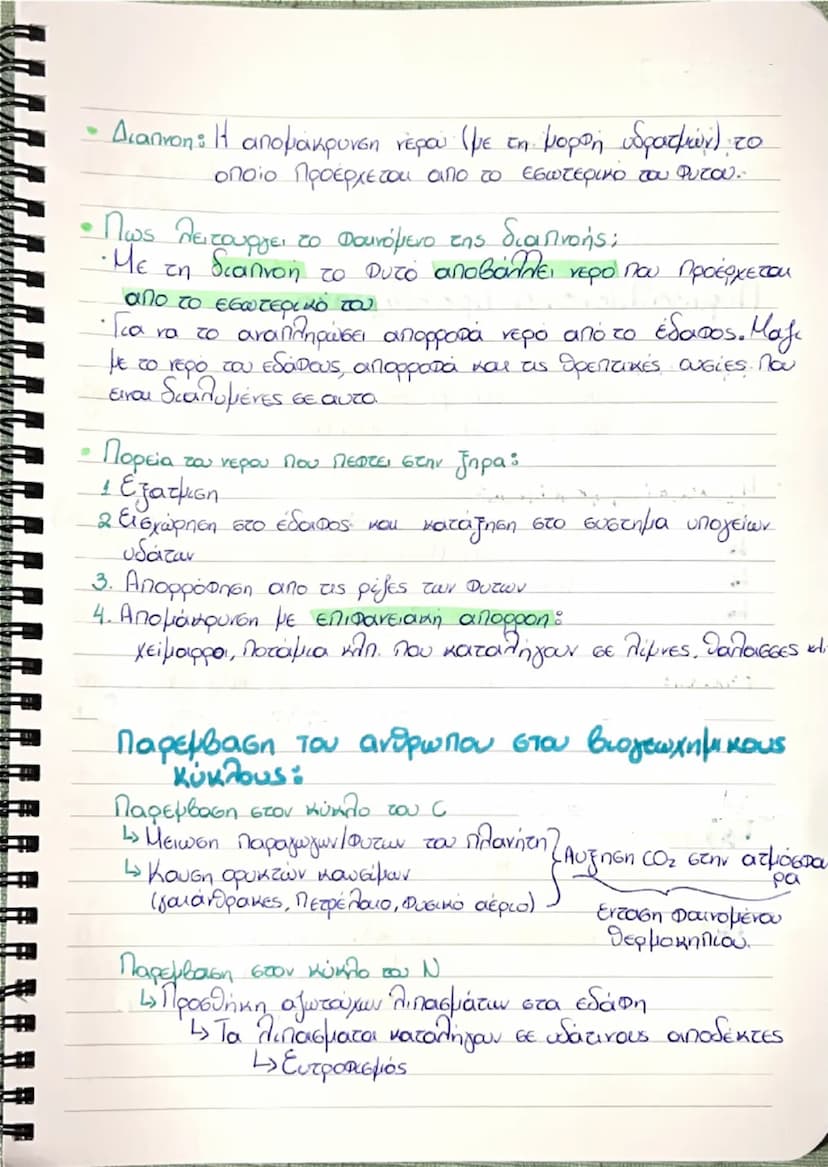 • Διαπνοη: Η απομάκρυνση νερου (με τη μορφή υδρατμών) το
οποίο προέρχεται απο το εσωτερικό του Φυτου.
• Πως λειτουργει το Φαινόμενο της διαπνοής;
· Με τη διαπνοή το Φυτό αποβάλλει νερο που προέρχεται
απο το εσωτερικό του
· Για να το αναπληρώσει απορροφά νερό από το έδαφος. Μαζι
με το νερό του εδάφους, απορροφά και τις θρεπτικές ουσίες που
ειναι διαλυμένες σε αυτο.
• Πορεία του νερου που πεφτει στην ξηρα:
1 Εξατμιση
2 Εισχώρηση στο έδαφος και κατάξηση στο συστημα υπογείων
υδάτων
3. Απορρόφηση απο τις ρίζες των Φυτων
4. Απομάκρυνση με επιφανειακή απορροη:
χείμαρροι, ποτάμια κλπ. που καταλήγουν σε λίμνες, θάλασσες κλ.
Παρεμβαση του ανθρωπου στου βιογεωχημικους
κύκλους:
Παρεμβαση στον κύκλο του C
↳ Μειωση παραγωγων/Φυτων του πλανήτη } Αυξηση CO₂ στην ατμόσφαι
↳ Καυση ορυκτών καυσίμων ρα
(γαιάνθρακες, Πετρέλαιο, Φυσικό αέριο)
Ενταση Φαινομένου
θερμοκηπίου.
Παρεμβαση στον κύκλο του Ν
↳ Προσθήκη αζωτούχων λιπασμάτων στα εδάφη
↳ Τα λιπασματα καταλήγουν σε υδάτινους αποδέκτες
↳ Ευτροφισμός